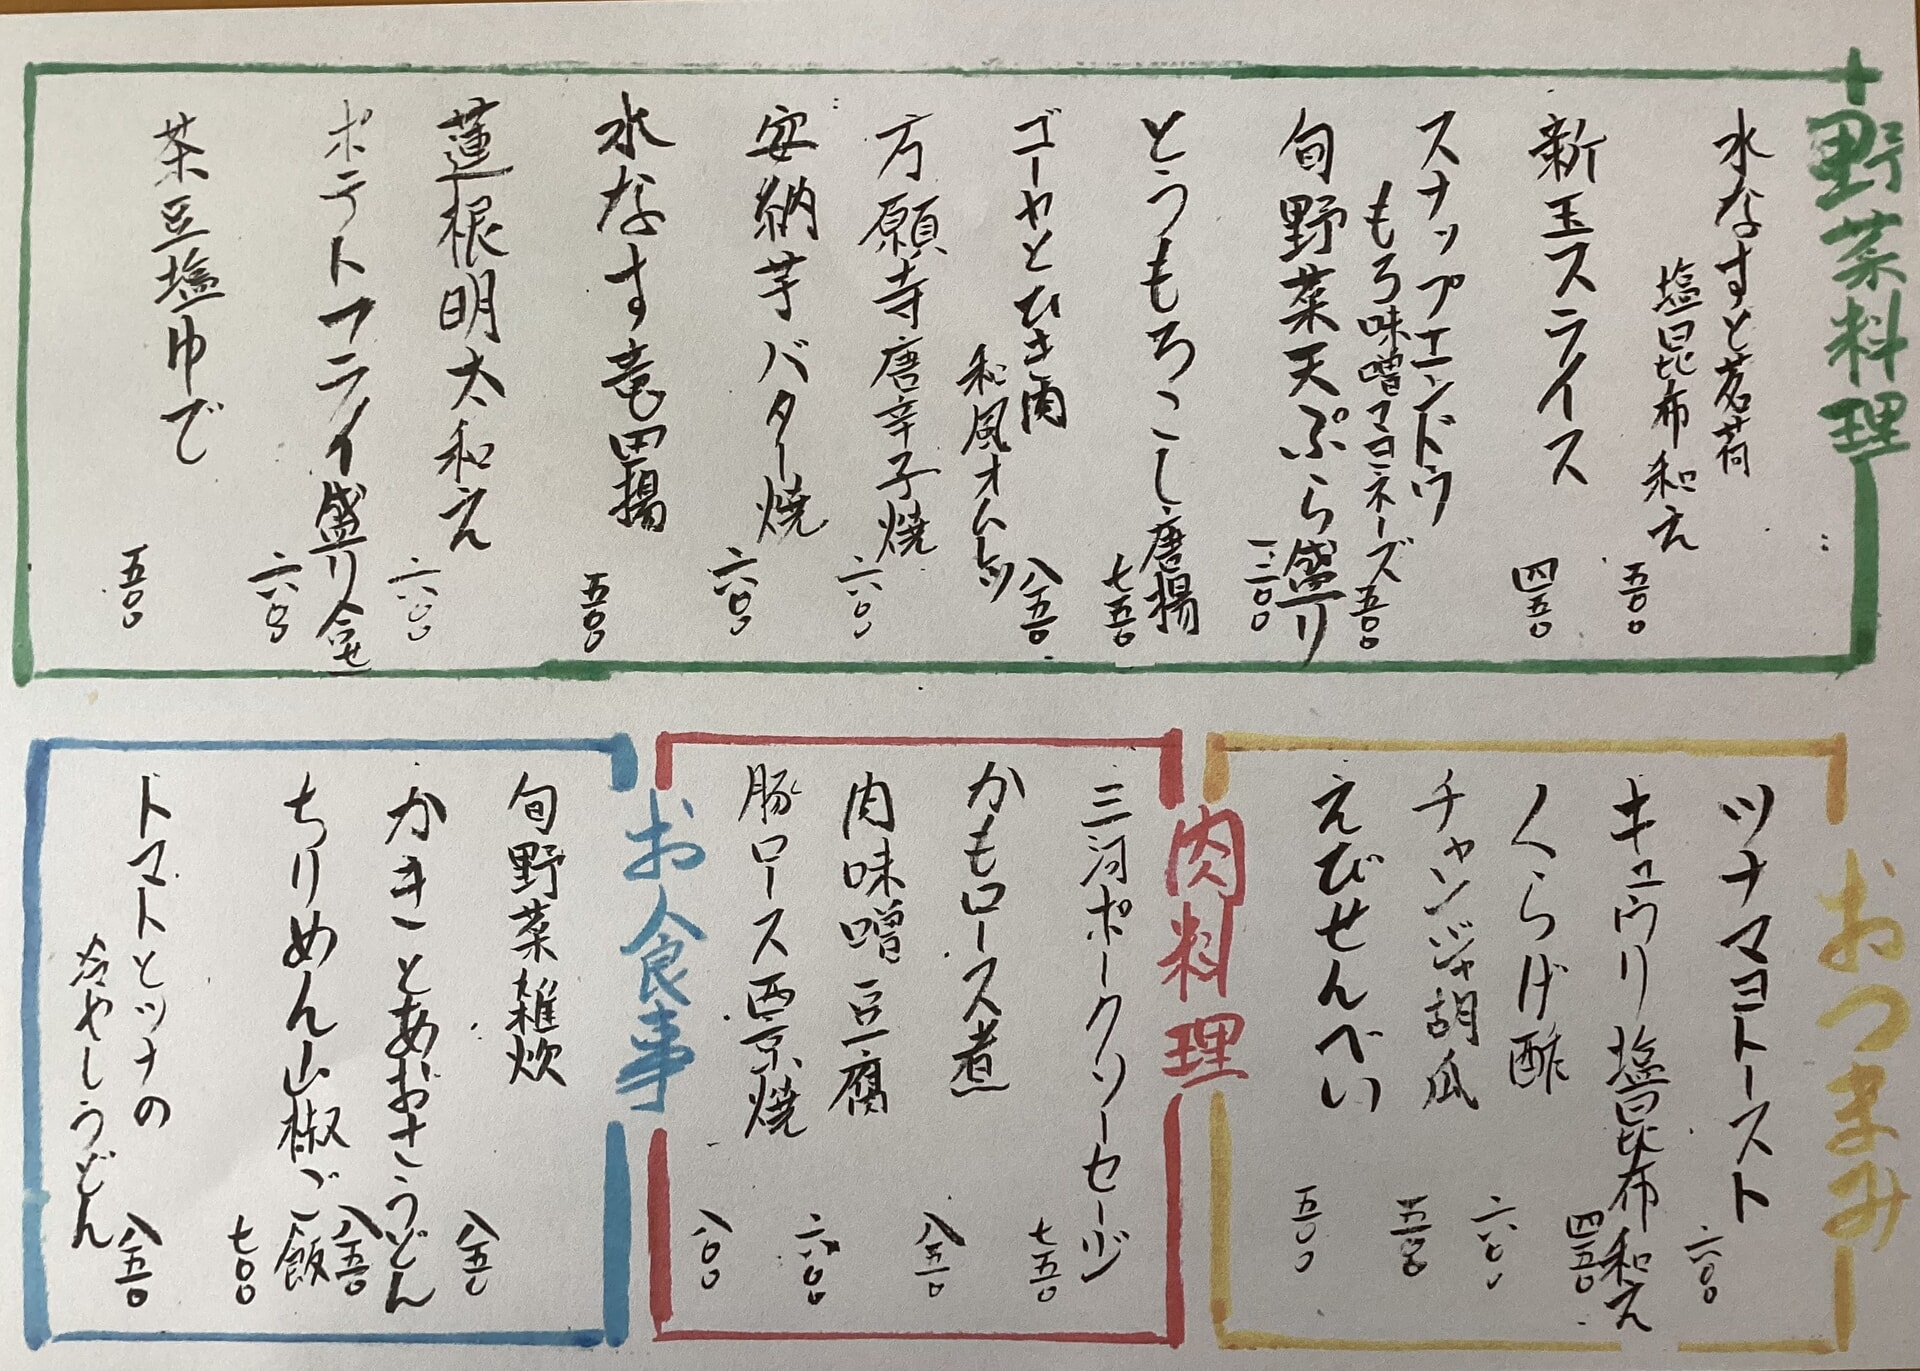 野菜料理
水なすと茗荷
塩昆布和え
五〇〇
新玉スライス
四五〇
スナップエンドウ
もろ味噌マヨネーズ
五〇〇
旬野菜天ぷら盛り
一二〇〇
とうもろこし唐揚
七五〇
ゴーヤとひき肉
和風オムレツ
八五〇
万願寺唐辛子焼
六〇〇
安納芋バター焼
六〇〇
水なす竜田揚
五〇〇
蓮根明太和え
六〇〇
ポテトフライ盛り合せ
六〇〇
茶豆塩ゆで
五〇〇
おつまみ
ツナマヨトースト
六〇〇
キュウリ塩昆布和え
四五〇
くらげ酢
六〇〇
チャンジャ胡瓜
五〇〇
えびせんべい
五〇〇
肉料理
三河ポークソーセージ
七五〇
かもロース煮
八五〇
肉味噌豆腐
六〇〇
豚ロース西京焼
八〇〇
お食事
旬野菜雑炊
八五〇
かきとあおさうどん
八五〇
ちりめん山椒ご飯
七〇〇
トマトとツナの
冷やしうどん
八五〇